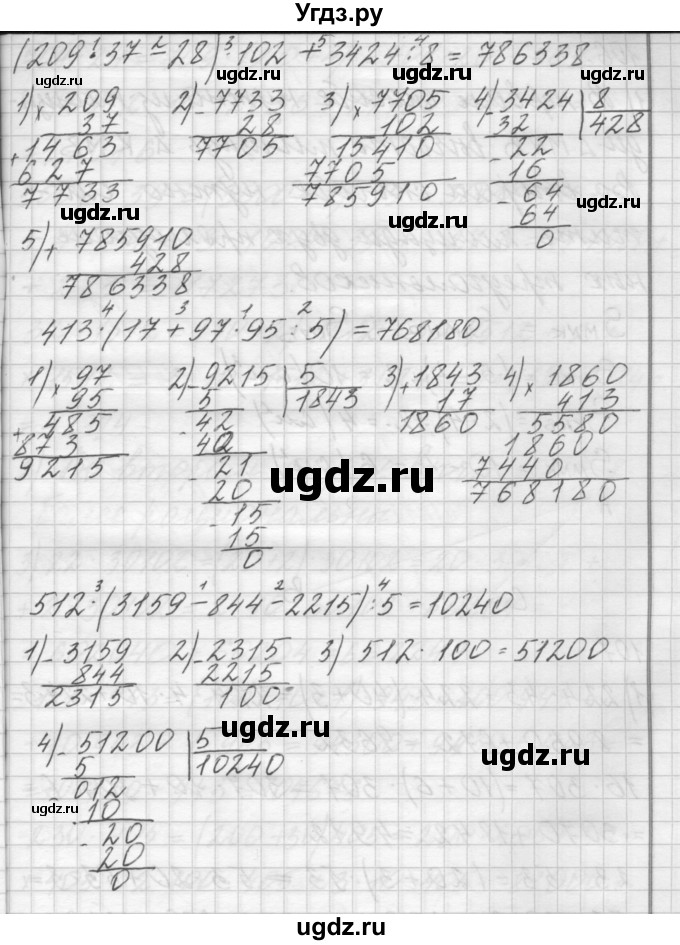 Угдз.ру
(209·37-28)·102+3424:8=786338
1 2 3 5 4
ugdz.ru ugdz.ru ugdz.ru
1) × 209 2) - 7733 3) × 7705 4) - 3424 | 8
37 28 102 32 428
+ 1463 7705 15410 - 22
627 7705 16
7733 785910 - 64
ugdz.ru ugdz.ru 64
0
5) + 785910
428
786338
413·(17+97·95:5)=768180
4 3 1 2
1) × 97 2) - 9215 | 5 3) + 1843 4) × 1860
95 5 1843 17 413
+ 485 - 42 1860 5580
873 40 1860
9215 - 21 7440
20 768180
- 15
15
0
ugdz.ru
512·(3159-844-2215):5=10240
3 1 2 4
1) - 3159 2) - 2315 3) 512·100=51200
844 2215
2315 100
ugdz.ru
4) - 51200 | 5
5 10240
012
- 10
- 20
20
0
ugdz.ru ugdz.ru ugdz.ru
ugdz.ru